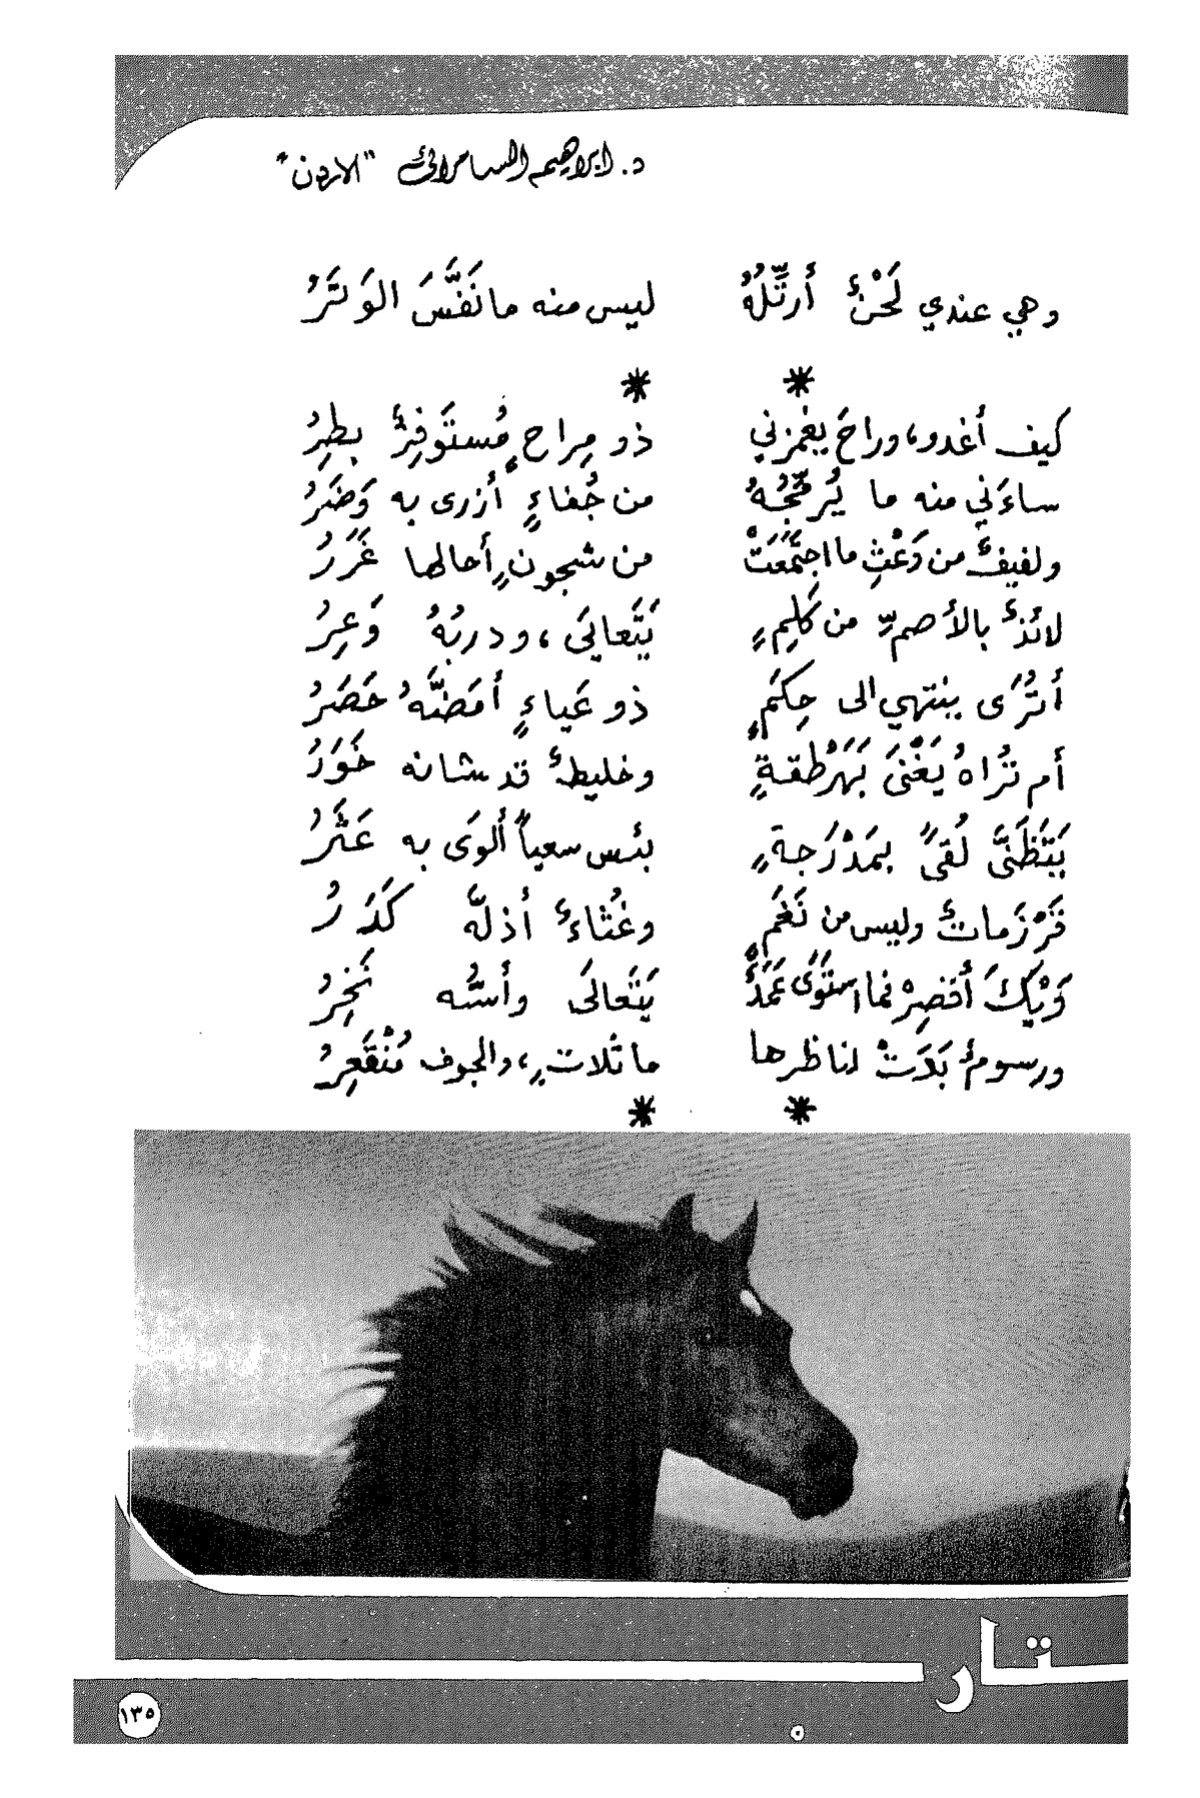 د. ابراهيم السامرائي "الاردن"
وهي عندي لَحْنٌ أُرتِّلُهُ ليس منه ما نَفَّسَ الوَتَرُ
* *
كيف أغدو، وراحَ يغمزني ذو مِراحٍ مُستَوفِزٌ بطِرُ
ساءَني منه ما يُرمِّجُهُ من جُفاءٍ أزرى به وَضَرُ
ولفيفٌ من وَعْثِ ما اجتَمَعَتْ من شجونٍ أحالها غَرَرُ
لائذٌ بالأصمِّ من كَلِمٍ يَتَعالَى، ودربُهُ وَعِرُ
أتُرَى ينتهي الى حِكَمٍ ذو عَياءٍ أمَضَّهُ حَصَرُ
أم تُراهُ يَغْنَى بَهَرْطَقةٍ وخليطٌ قد شانه خَوَرُ
يَتَظَنَّى لُقىً بمَدْرَجةٍ بئس سعياً ألوَى به عَثَرُ
قَرْزَماتٌ وليس من نَغَمٍ وغُثاءٌ أذلَّه كَدَرُ
وَيْكَ أقصِرْ فما استَوَى عَمَدٌ يَتَعالَى وأسُّه نَخِرُ
ورسومٌ بَدَتْ لناظرها ماثلاتٍ، والجوف مُنْقَعِرُ
* *
ـتار
١٣٥